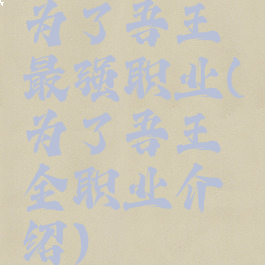 为了吾王
最强职业(
为了吾王
全职业介
绍)